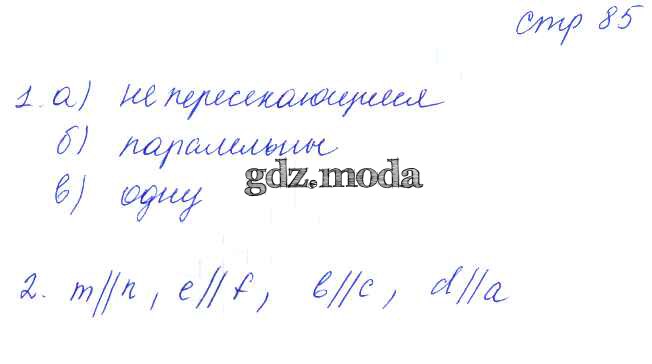 стр 85
1. а) не пересекающиеся
б) паралельны
в) одну
gdz.moda
2. m//n, e//f, b//c, d//a